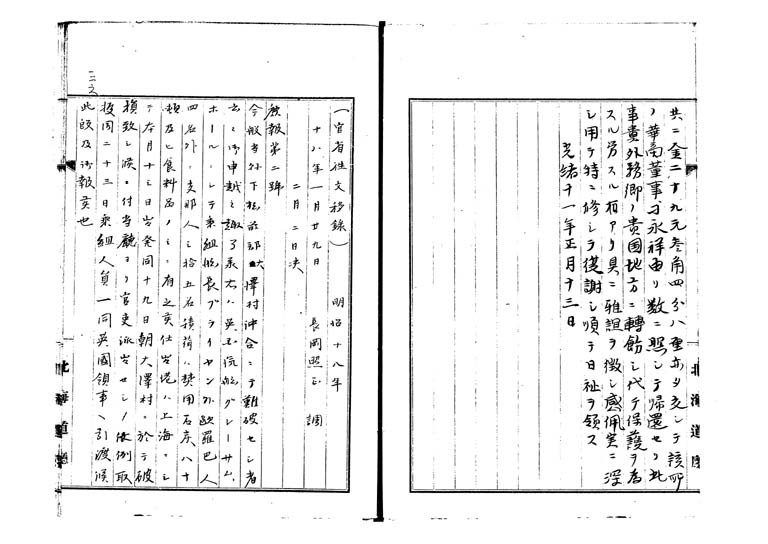 共ニ金二十九元叁角四分八厘亦タ交シテ該郎
ノ華商董事 永祥由リ数ニ照シテ帰還セリ此
事貴外務卿ノ貴国地方ニ轉飭シ代テ保護ヲ為
スル労スル有アリ具ニ雅誼ヲ徴シ感佩実ニ深
シ用テ特ニ修シテ復謝シ順テ日祉ヲ頌ス
光緒十一年正月十三日
北海道廳
一官省往文移録)
明治十八年
十八年一月廿九日 長岡照止 調
二月二日決
廣報第二号
今般当外下松前郡大澤村沖合ニテ難破セシ者
云々御申越之趣了承右ハ英国汽船グレーサム、
ホール、ニテ乗組船長ブライヤン外欧羅巴人
四名外ニ支那人三拾五名積荷ハ焚用石炭八十
頓及ヒ食料品ノミニ有之度仕出港ハ上海ニシ
テ本月十三日出発同十九日朝大澤村ニ於テ破
損致シ候ニ付当廳ヨリ官吏派出セシメ依例取
扱同二十三日乗組人員一同英國領事ヘ引渡候
此段及御報度也
北海道廳